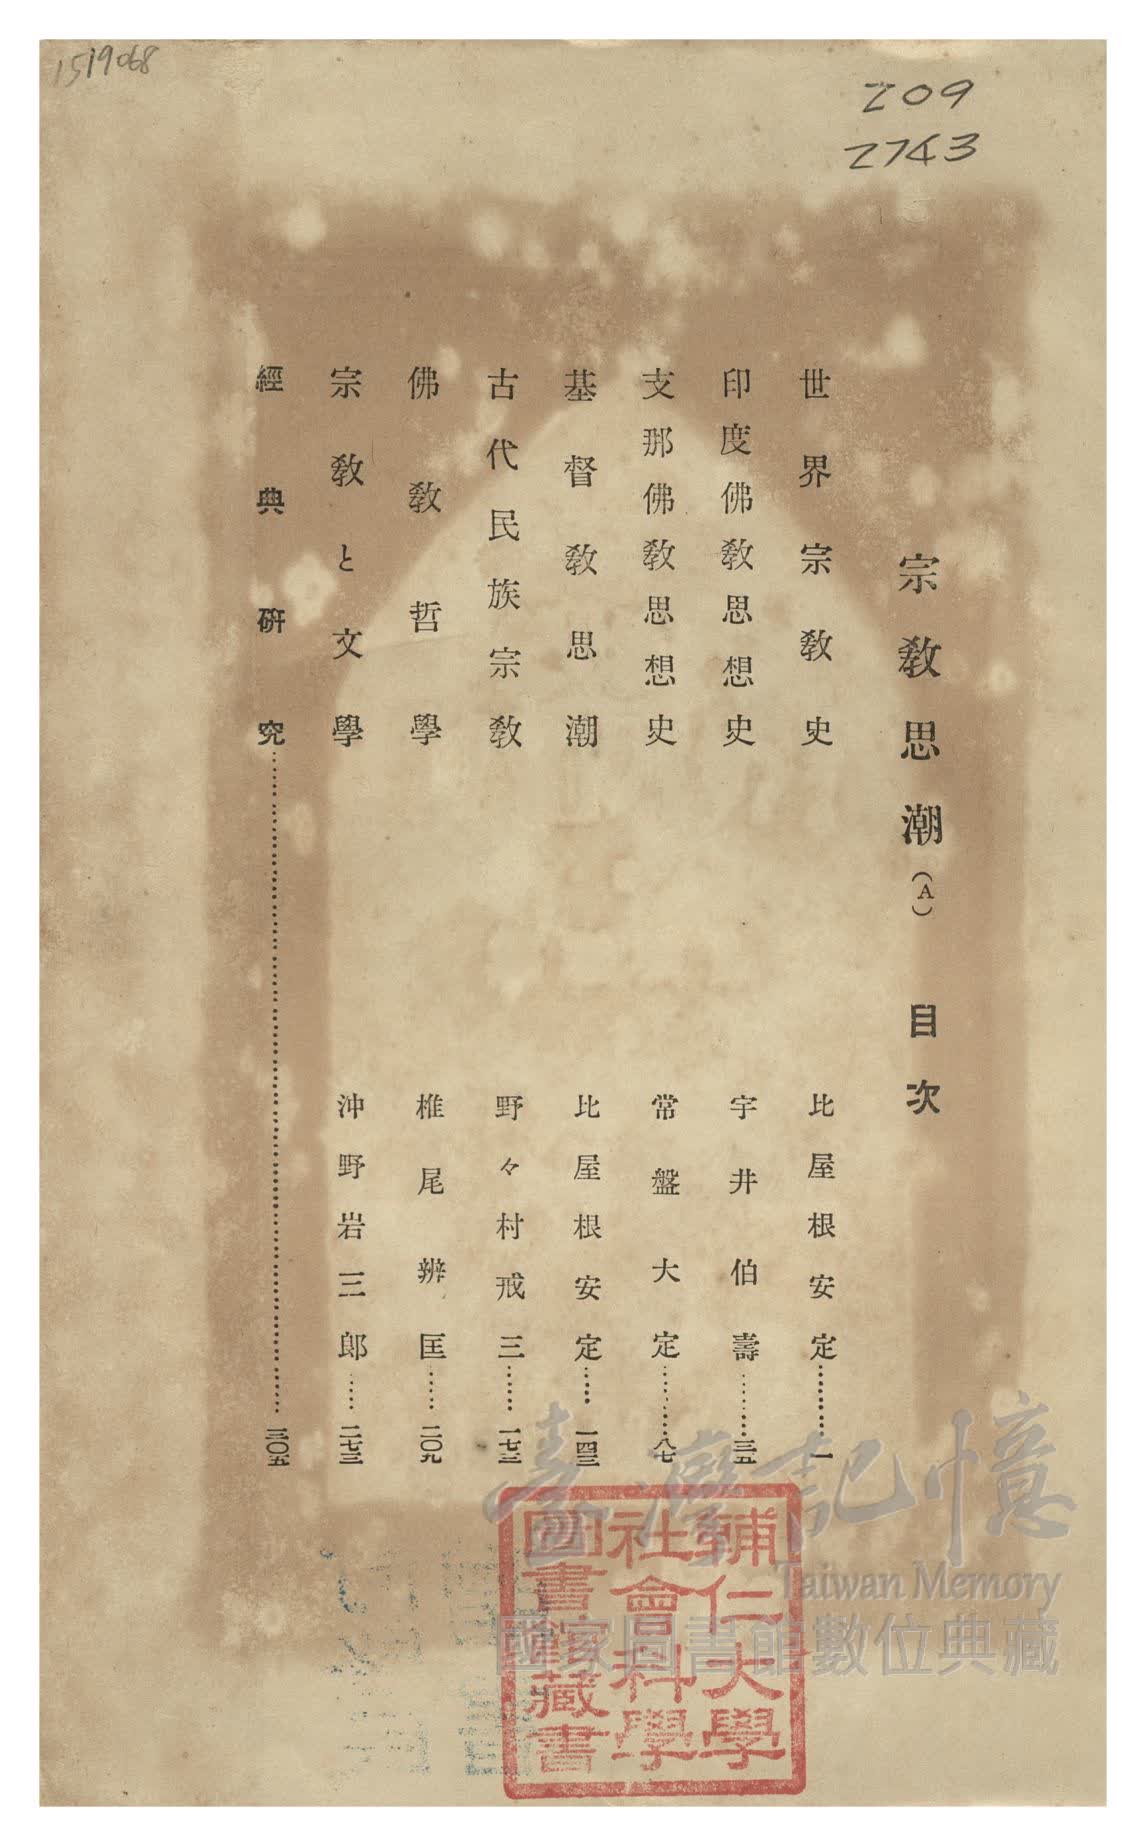 1519068
209
2743
宗教思潮(A) 目次
世界宗教史 比屋根安定………一
印度佛教思想史 宇井伯壽……三五
支那佛教思想史 常盤大定……八七
基督教思潮 比屋根安定……一四三
古代民族宗教 野々村戒三……一七三
佛教哲學 椎尾辨匡……二〇九
宗教と文學 沖野岩三郎……二七三
經典研究………………………………三〇五
輔仁大學
社會科學
圖書館藏書
臺灣記憶
Taiwan Memory
國家圖書館數位典藏